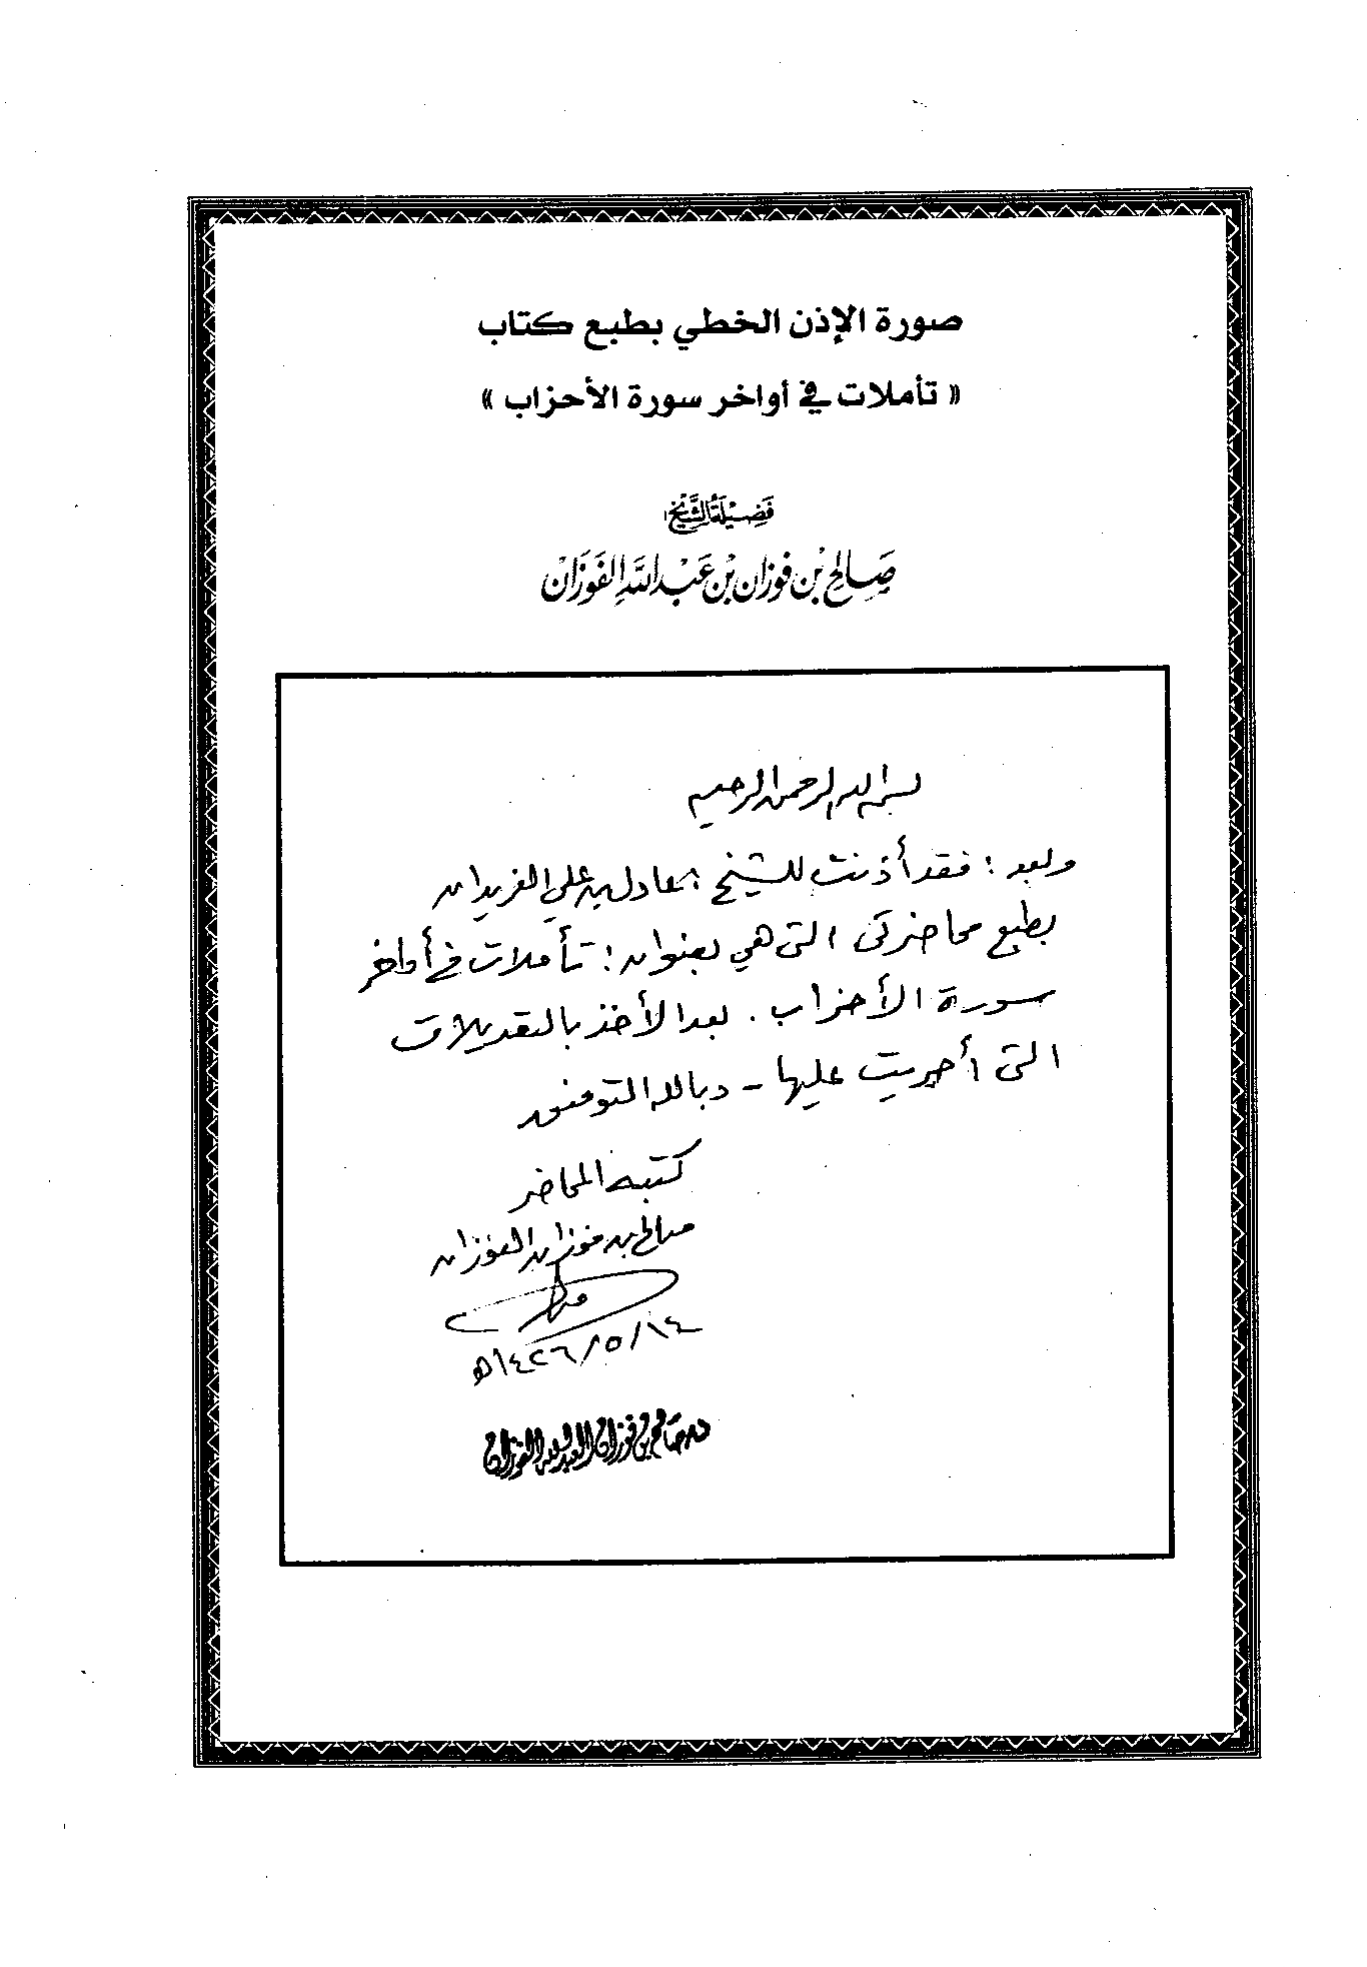 صورة الإذن الخطي بطبع كتاب
« تأملات في أواخر سورة الأحزاب »
فَضِيْلَةُ الشَّيْخ
صَالح بْن فوزان بْن عَبْد اللَّهِ الفَوَزَانْ
بسم الله الرحمن الرحيم
وبعد : فقد أذنت للشيخ : عادل بن علي الفريدان
بطبع محاضرتي التي هي بعنوان : تأملات في أواخر
سورة الأحزاب . بعد الأخذ بالتعديلات
التي أجريت عليها - وبالله التوفيق
كتبه المحاضر
صالح بن فوزان الفوزان
١٤٢٦/٥/١٤هـ
صالح بن فوزان العبدالله الفوزان